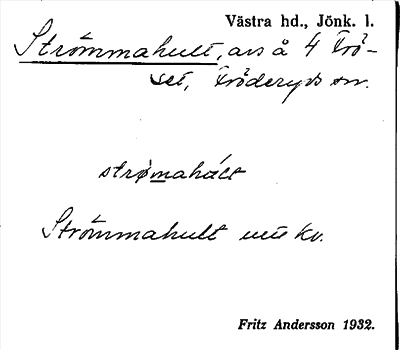 Västra hd., Jönk. l.
Strömmahult, avs å 4 Frö-
set, Fröderyds sn.
strømahált
Strömmahult uu kv.
Fritz Andersson 1932.